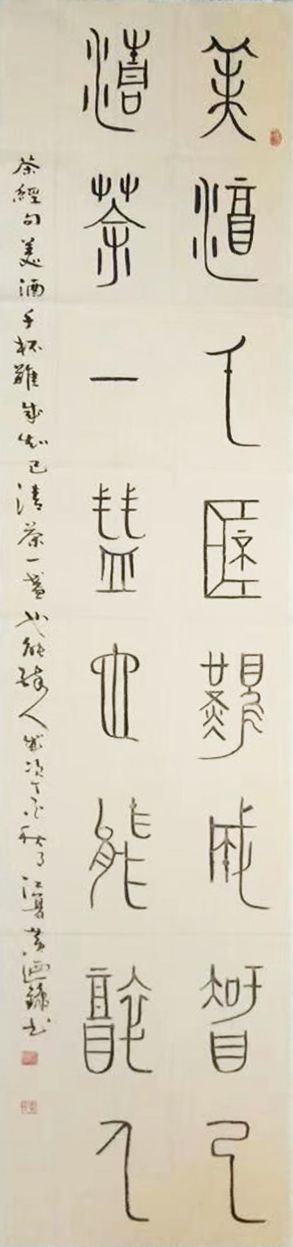 美酒千杯難成知己
清茶一盞也能醉人
茶經句美酒千杯難成知己清茶一盞也能醉人歲次丁酉秋月江夏黃書